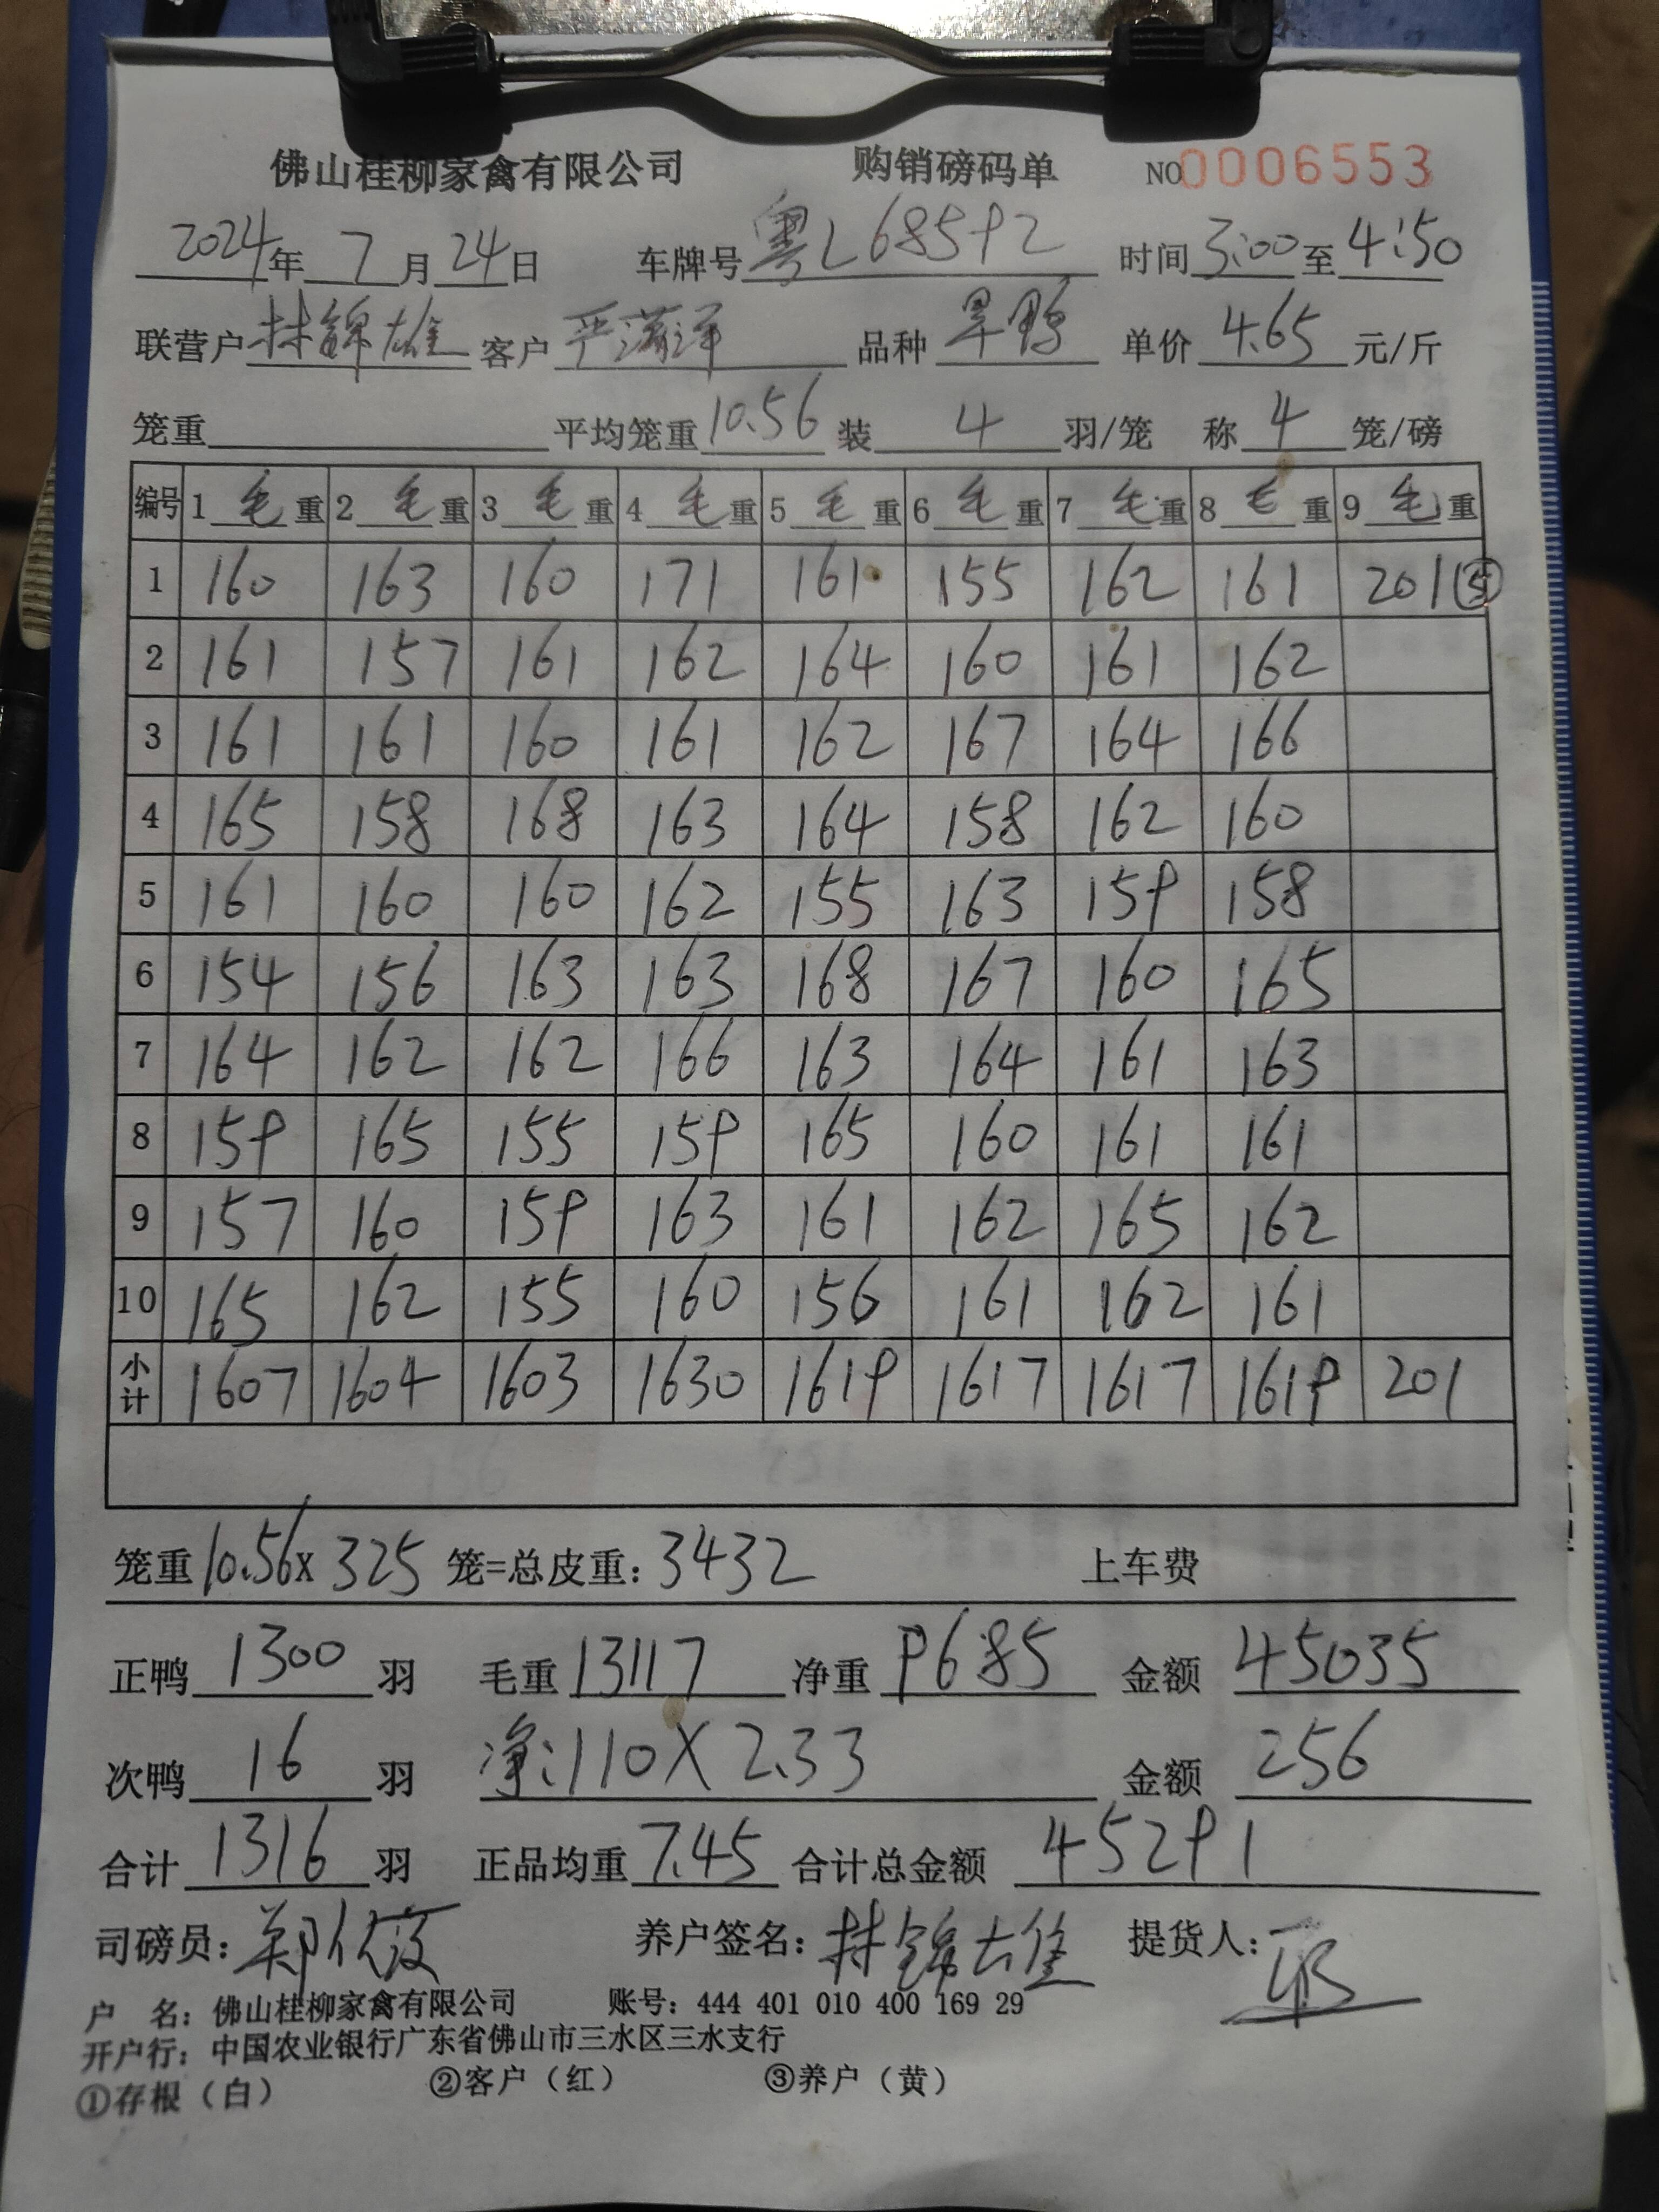 佛山桂柳家禽有限公司 购销磅码单 NO0006553
2024年7月24日 车牌号粤L68592 时间3:00至4:50
联营户林錦雄 客户严 品种旱鸭 单价4.65元/斤
笼重 平均笼重10.56 装4羽/笼 称4笼/磅
编号 1毛重 2毛重 3毛重 4毛重 5毛重 6毛重 7毛重 8毛重 9毛重
1 160 163 160 171 161 155 162 161 201⑤
2 161 157 161 162 164 160 161 162
3 161 161 160 161 162 167 164 166
4 165 158 168 163 164 158 162 160
5 161 160 160 162 155 163 159 158
6 154 156 163 163 168 167 160 165
7 164 162 162 166 163 164 161 163
8 159 165 155 159 165 160 161 161
9 157 160 159 163 161 162 165 162
10 165 162 155 160 156 161 162 161
小计 1607 1604 1603 1630 1619 1617 1617 1619 201
笼重10.56x325笼=总皮重：3432 上车费
正鸭1300羽 毛重13117 净重9685 金额45035
次鸭16羽 净：110X2.33 金额256
合计1316羽 正品均重7.45 合计总金额45291
司磅员：郑 养户签名：林錦雄 提货人：
户 名：佛山桂柳家禽有限公司 账号：444 401 010 400 169 29
开户行：中国农业银行广东省佛山市三水区三水支行
①存根（白） ②客户（红） ③养户（黄）